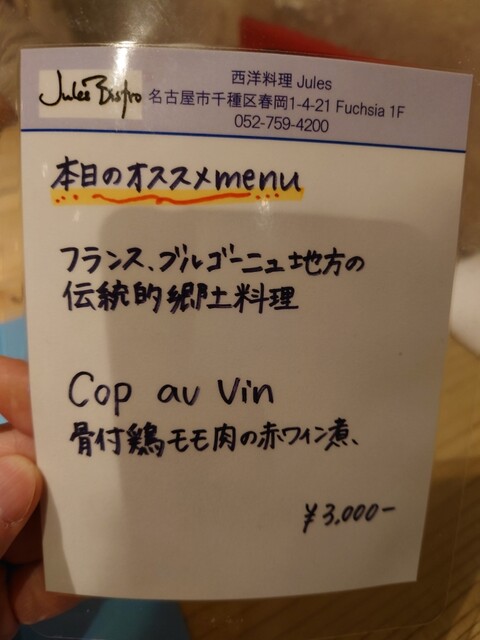 Jules Bistro
西洋料理 Jules
名古屋市千種区春岡1-4-21 Fuchsia 1F
052-759-4200
本日のオススメmenu
フランス、ブルゴーニュ地方の
伝統的郷土料理
Cop au Vin
骨付鶏モモ肉の赤ワイン煮、
¥3,000-